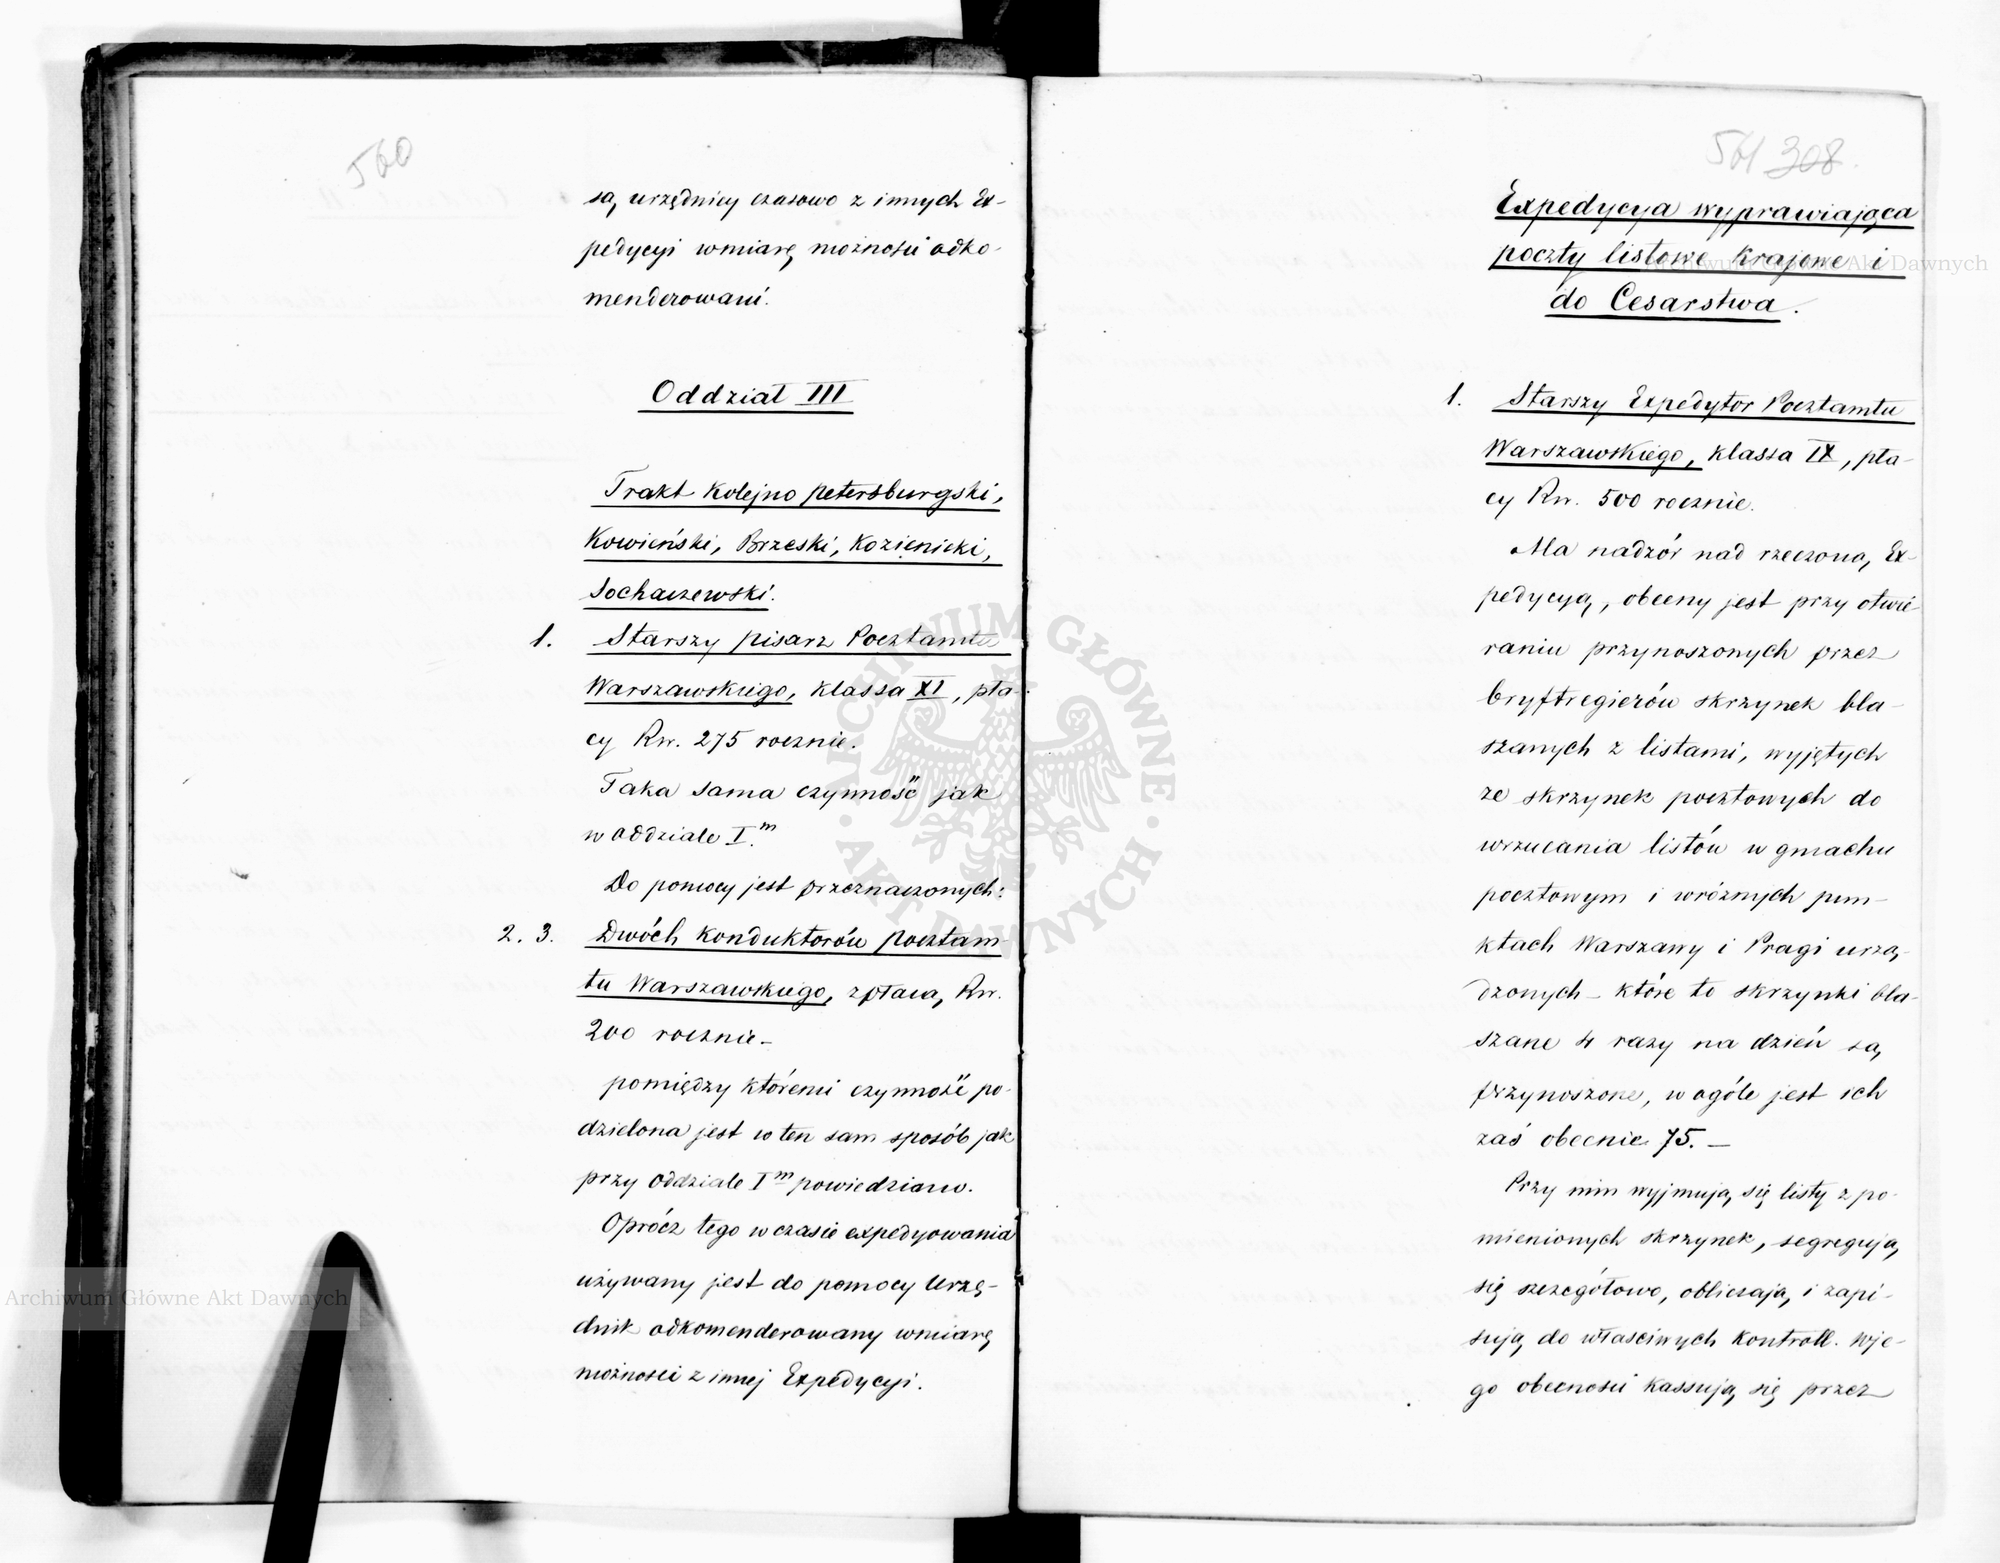 560
są, urzędnicy czasowo z innych Ex-
pedycyi wmiarę możności odko-
menderowani.
Oddział III
Trakt Kolejno petersburgski,
Kowieński, Brzeski, Kozienicki,
Sochaczewski.
1. Starszy pisarz Pocztamtu
Warszawskiego, klassa XI, pła-
cy Rsr. 275 rocznie.
Taka sama czynność jak
w oddziale I.m
Do pomocy jest przeznaczonych:
2. 3. Dwóch Konduktorów pocztam-
tu Warszawskiego, z płacą Rsr.
200 rocznie –
pomiędzy któremi czynność po-
dzielona jest w ten sam sposób jak
przy oddziale I m powiedziano.
Oprócz tego w czasie expedyowania
używany jest do pomocy Urzę-
dnik odkomenderowany wmiarę
możności z innej Expedycyi.
561 308.
Expedycya wyprawiająca
poczty listowe Krajowe i
do Cesarstwa.
1. Starszy Expedytor Pocztamtu
Warszawskiego, klassa IX, pła-
cy Rsr. 500 rocznie.
Ma nadzór nad rzeczoną Ex-
pedycyą, obecny jest przy otwie-
raniu przynoszonych przez
bryftregierów skrzynek bla-
szanych z listami, wyjętych
ze skrzynek pocztowych do
wrzucania listów w gmachu
pocztowym i wróżnych pun-
ktach Warszawy i Pragi urzą-
dzonych – które to skrzynki bla-
szane 4 razy na dzień są
przynoszone, w ogóle jest ich
zaś obecnie 75. –
Przy nim wyjmują się listy z po-
mienionych skrzynek, segregują
się szczegółowo, obliczają i zapi-
sują do właściwych Kontroll. Wje-
go obecności Kassują się przez
Archiwum Główne Akt Dawnych
Archiwum Główne Akt Dawnych
ARCHIWUM GŁÓWNE
AKT DAWNYCH